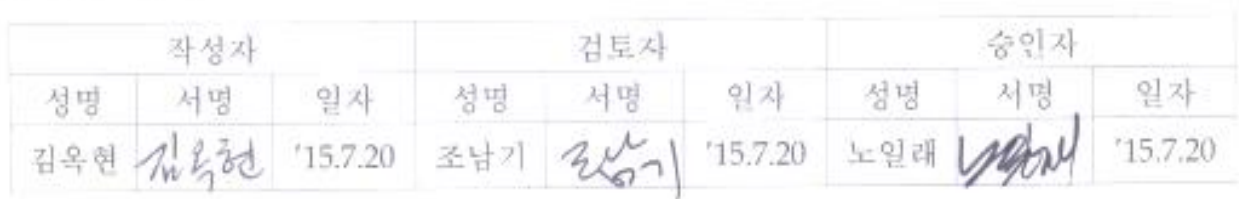 작성자 검토자 승인자
성명 서명 일자 성명 서명 일자 성명 서명 일자
김옥현 김옥현 '15.7.20 조남기 조남기 '15.7.20 노일래 '15.7.20